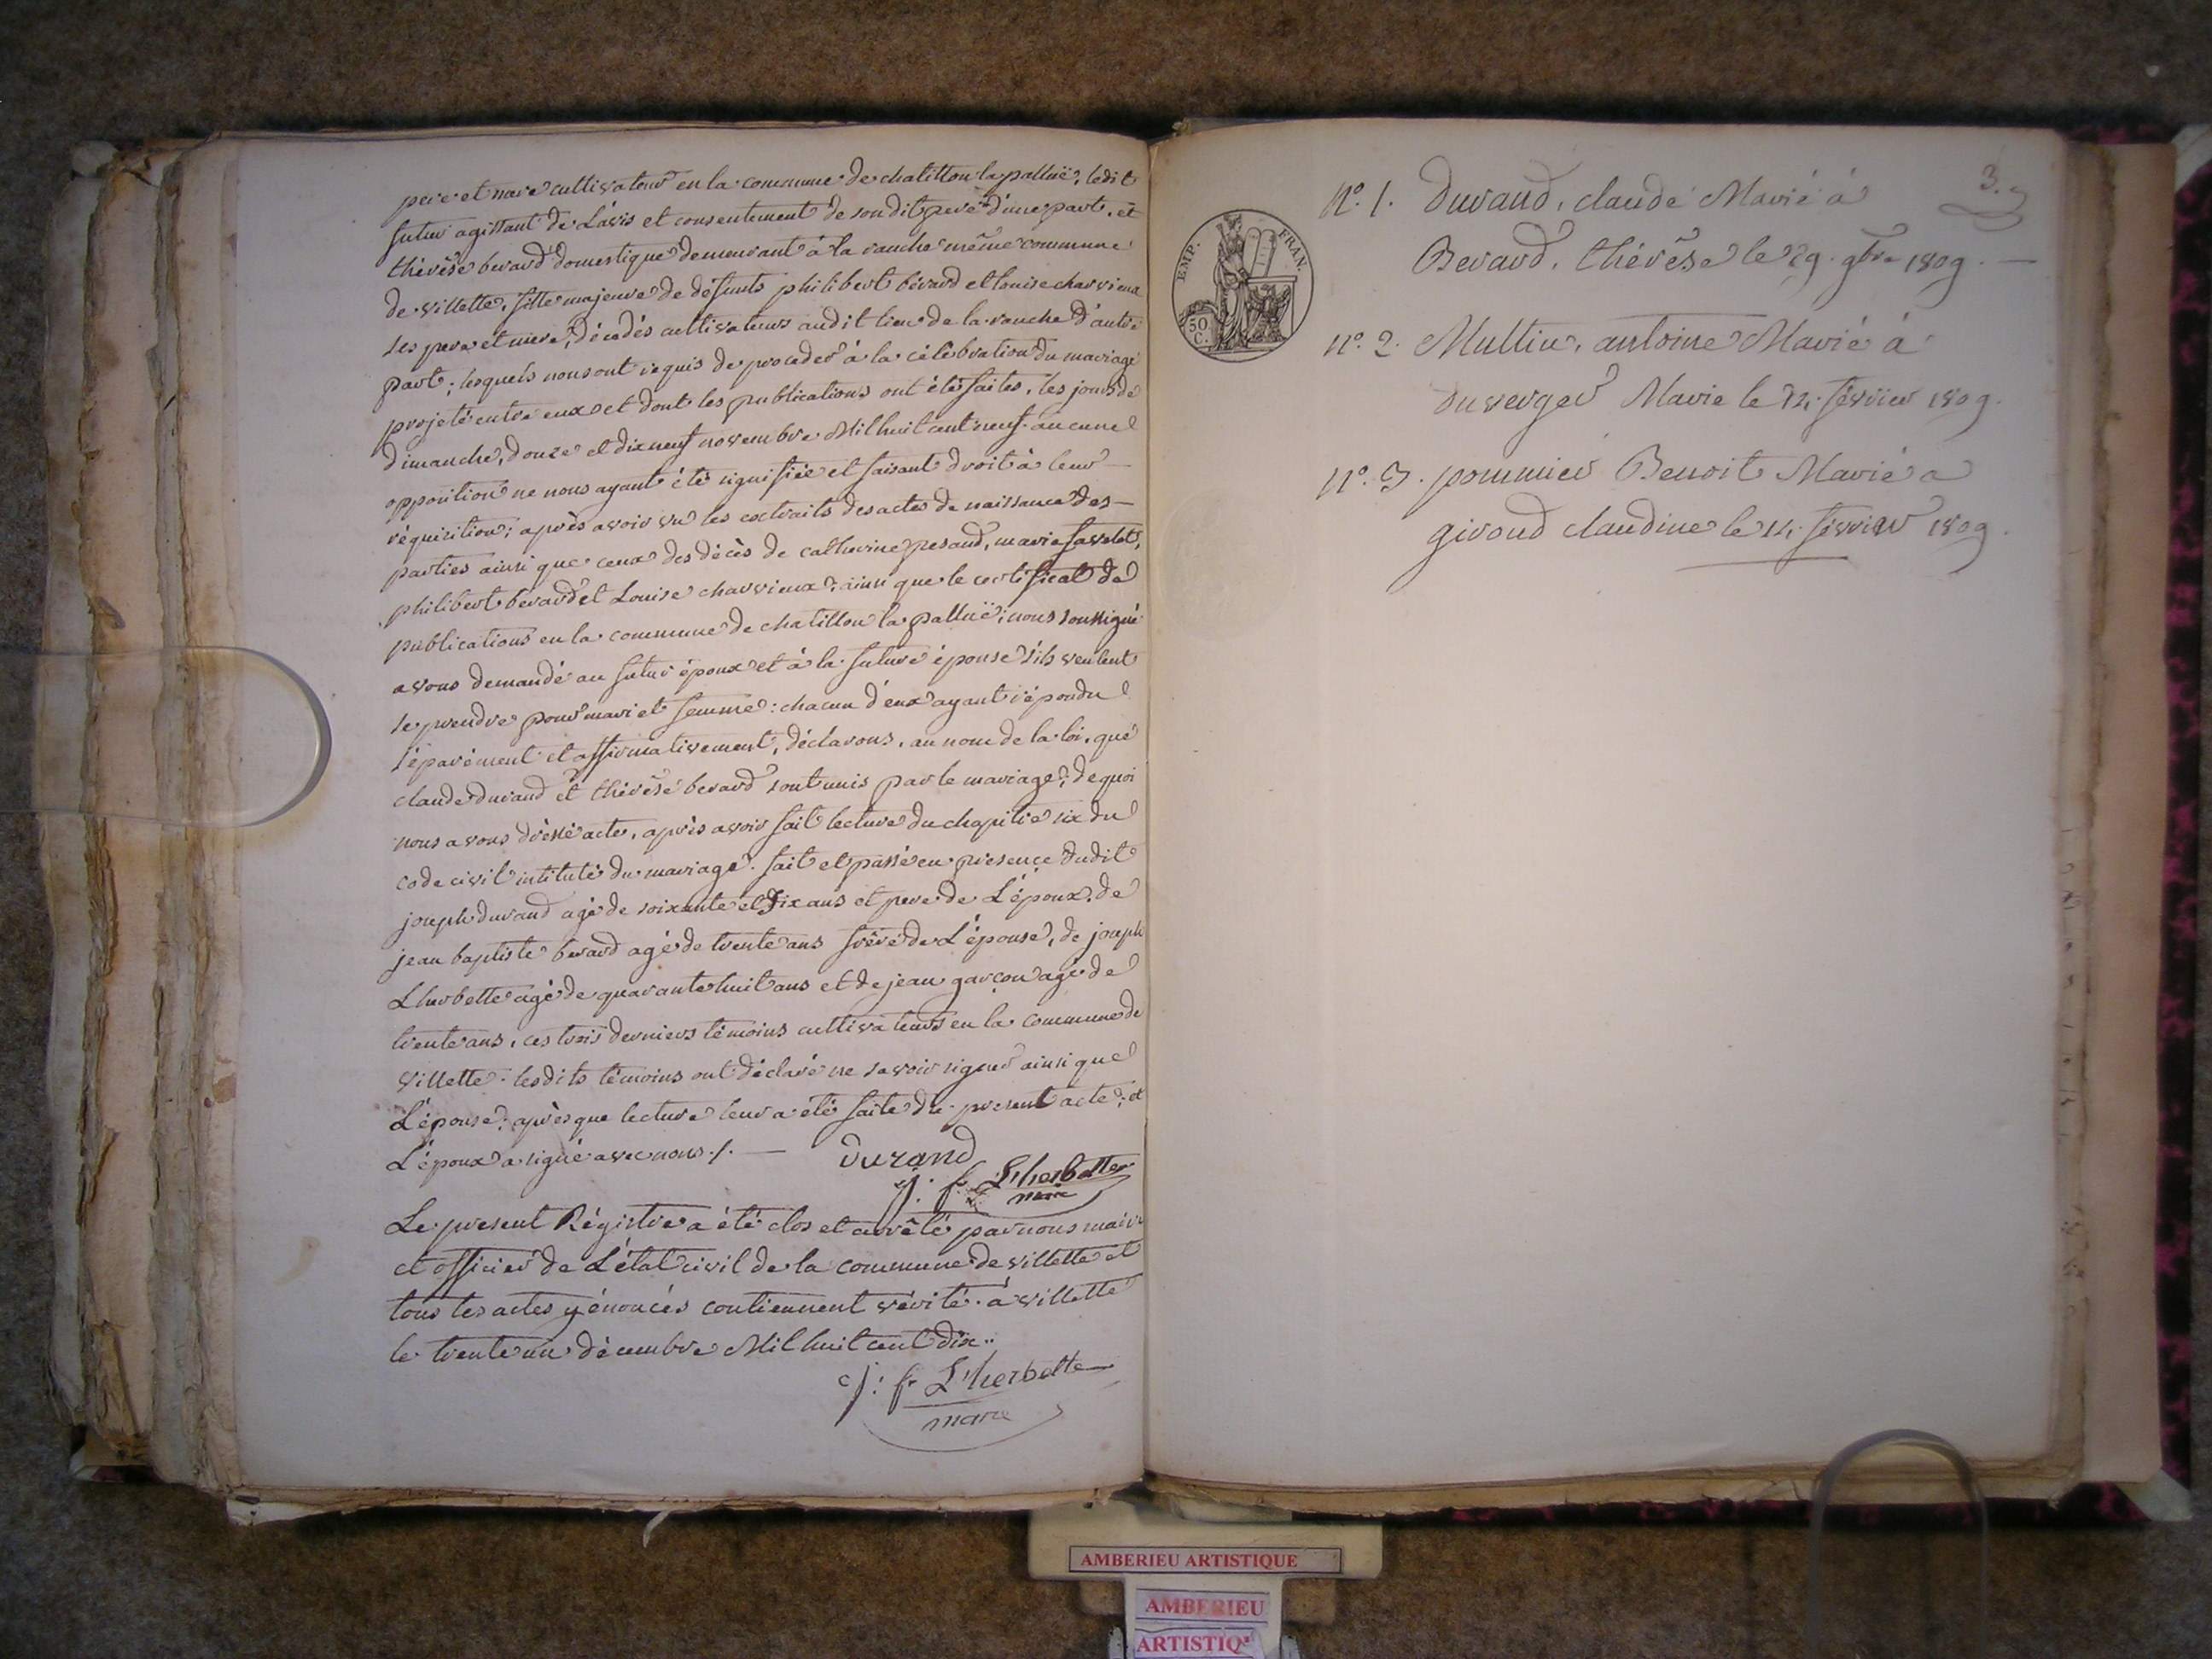 pere et mere cultivateur en la commune de chatillon la palluë, ledit
futur agissant de L'avis et consentement de son dit pere d'une part, et
thérèse berard domestique demeurant à la ranche même commune
de villette, fille majeure de défunts philibert bérard et louise charvieux
ses pere et mere, décédés cultivateurs audit lieu de la ranche d'autre
part; lesquels nous ont requis de proceder à la célébration du mariage
projeté entre eux et dont les publications ont été faites, les jours de
dimanche, douze et dix neuf novembre Mil huit cent neuf. aucune
opposition ne nous ayant été signifiée et faisant droit à leur
réquisition; après avoir vu les extraits des actes de naissance des
parties ainsi que ceux des décès de catherine pesand, marie
philibert bérard et Louise charvieux; ainsi que le certificat de
publications en la commune de chatillon la palluë; nous soussigné
avons demandé au futur époux et à la future épouse s'ils veulent
se prendre pour mari et femme: chacun d'eux ayant répondu
séparément et affirmativement, déclarons, au nom de la loi, que
claude durand et thérèse berard sont unis par le mariage; de quoi
nous avons dréssé acte, après avoir fait lecture du chapitre six du
code civil intitulé du mariage. fait et passé en presence dudit
joseph durand agé de soixante et dix ans et pere de L'époux, de
jean baptiste berard agé de trente ans frére de L'épouse, de joseph
Lhurbette agé de quarante huit ans et de jean garçon agé de
trente ans, ces trois derniers témoins cultivateurs en la commune de
villette. lesdits témoins ont déclaré ne savoir signer ainsi que
L'épouse; après que lecture leur a été faite du present acte; et
L'époux a signé avec nous ./.
Durand
j: f L'herbette
maire
Le present Régistre a été clos et arrêté par nous maire
et officier de L'état civil de la commune de villette et
tous les actes y énoncés contiennent vérité. à villette
le trente un décembre Mil huit cent dix..
j: f L'herbette
maire
3.
EMP. FRAN.
50 C.
N°. 1. Durand, claude Marié à
Berard, thérèse le 29. 9bre 1809.
N°. 2. Multin, antoine Marié à
Duverger Marie le 12, février 1809.
N°. 3. pommier Benoit Marié a
giroud claudine le 14, février 1809.
AMBERIEU ARTISTIQUE
AMBERIEU
ARTISTIQ